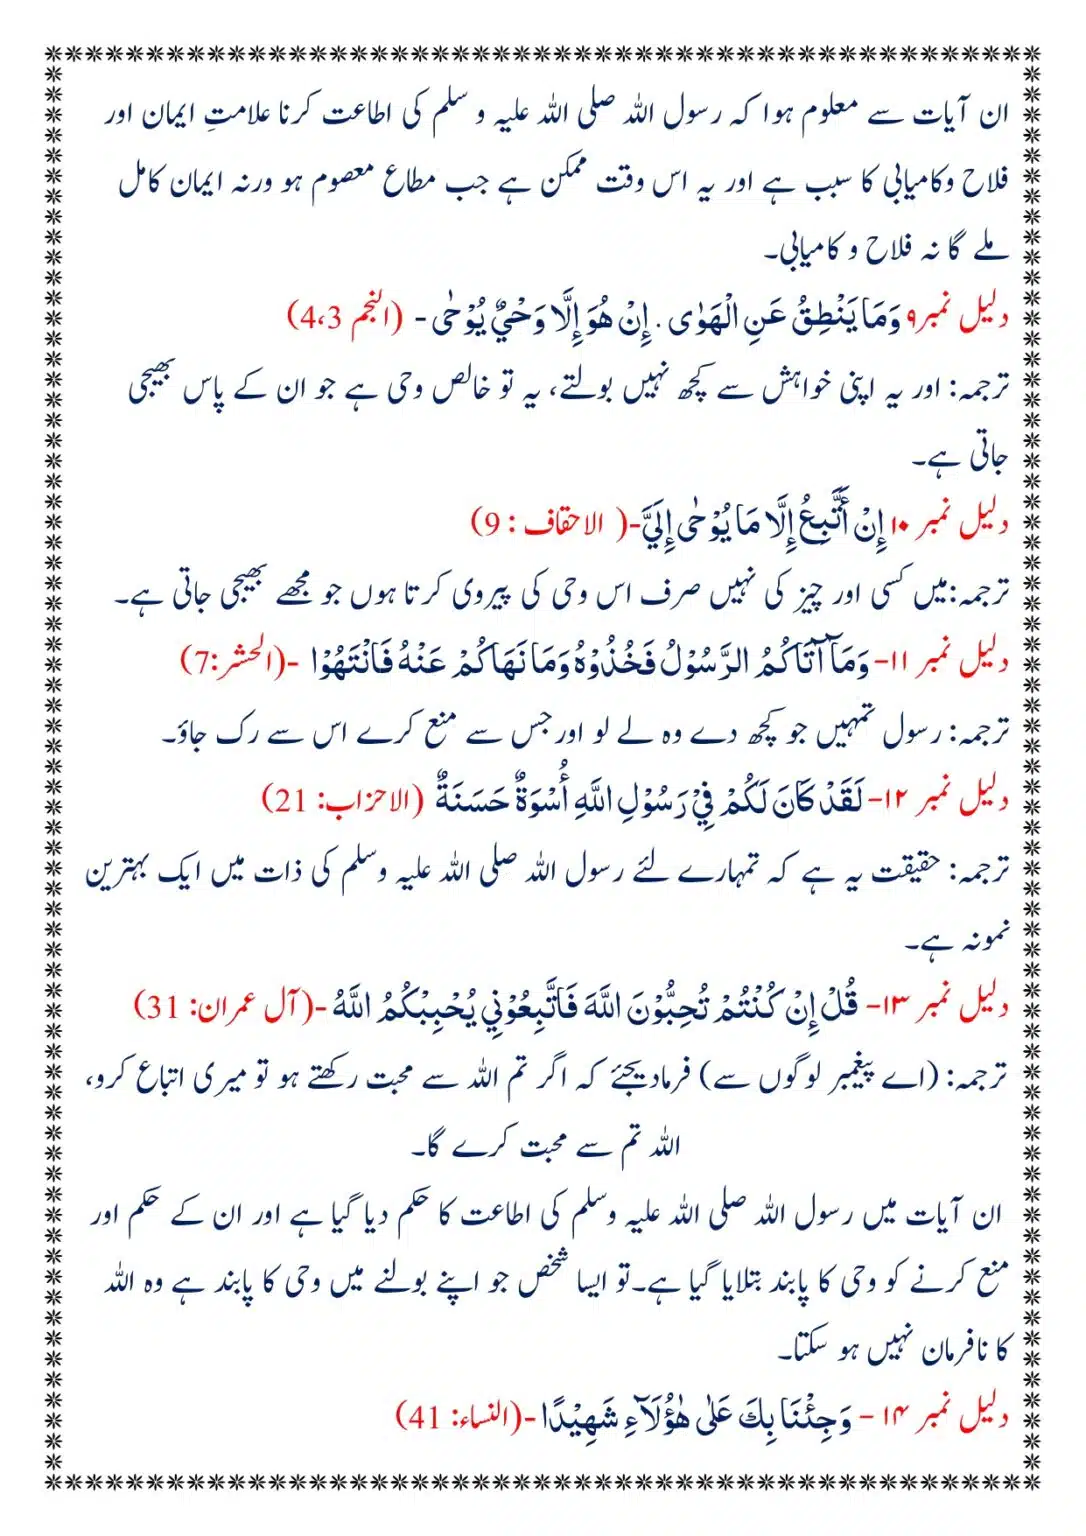 ان آیات سے معلوم ہوا کہ رسول اللہ صلی اللہ علیہ و سلم کی اطاعت کرنا علامتِ ایمان اور
فلاح وکامیابی کا سبب ہے اور یہ اس وقت ممکن ہے جب مطاع معصوم ہو ورنہ ایمان کامل
ملے گا نہ فلاح و کامیابی۔
دلیل نمبر۹ وَمَا یَنْطِقُ عَنِ الْهَوٰی . إِنْ هُوَ إِلَّا وَحْیٌ یُوْحٰی - (النجم 4،3)
ترجمہ: اور یہ اپنی خواہش سے کچھ نہیں بولتے، یہ تو خالص وحی ہے جو ان کے پاس بھیجی
جاتی ہے۔
دلیل نمبر ۱۰ إِنْ أَتَّبِعُ إِلَّا مَا یُوْحٰی إِلَیَّ-( الاحقاف : 9)
ترجمہ:میں کسی اور چیز کی نہیں صرف اس وحی کی پیروی کرتا ہوں جو مجھے بھیجی جاتی ہے۔
دلیل نمبر ۱۱- وَمَآ آتَاكُمُ الرَّسُوْلُ فَخُذُوْهُ وَمَا نَهَاكُمْ عَنْهُ فَانْتَهُوْا -(الحشر:7)
ترجمہ: رسول تمہیں جو کچھ دے وہ لے لو اورجس سے منع کرے اس سے رک جاؤ۔
دلیل نمبر ۱۲- لَقَدْ كَانَ لَكُمْ فِیْ رَسُوْلِ اللَّهِ أُسْوَةٌ حَسَنَةٌ (الاحزاب: 21)
ترجمہ: حقیقت یہ ہے کہ تمہارے لئے رسول اللہ صلی اللہ علیہ وسلم کی ذات میں ایک بہترین
نمونہ ہے۔
دلیل نمبر ۱۳- قُلْ إِنْ كُنْتُمْ تُحِبُّوْنَ اللَّهَ فَاتَّبِعُوْنِي یُحْبِبْكُمُ اللَّهُ -(آل عمران: 31)
ترجمہ: (اے پیغمبر لوگوں سے) فرمادیجئے کہ اگر تم اللہ سے محبت رکھتے ہو تو میری اتباع کرو،
اللہ تم سے محبت کرے گا۔
ان آیات میں رسول اللہ صلی اللہ علیہ وسلم کی اطاعت کا حکم دیا گیا ہے اور ان کے حکم اور
منع کرنے کو وحی کا پابند بتلایا گیا ہے۔تو ایسا شخص جو اپنے بولنے میں وحی کا پابند ہے وہ اللہ
کا نافرمان نہیں ہو سکتا۔
دلیل نمبر ۱۴ - وَجِئْنَا بِكَ عَلٰی هٰؤُلَآءِ شَهِیْدًا -(النساء: 41)